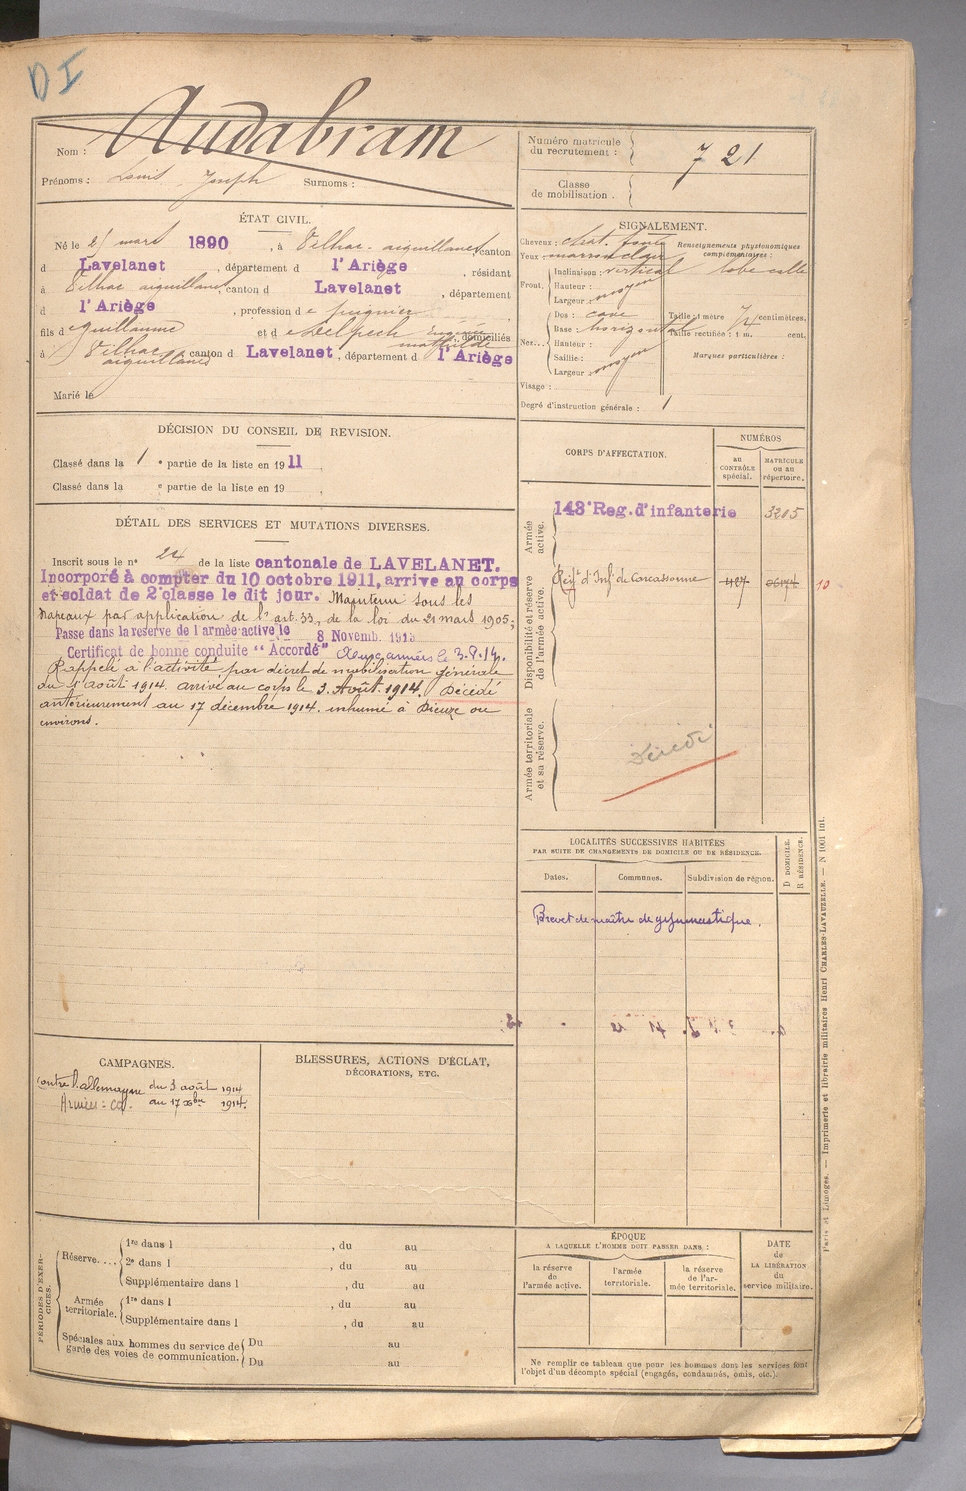 DI
Nom : Audabram
Prénoms : Louis Joseph Surnoms :
Numéro matricule
du recrutement : 721
Classe
de mobilisation .
ÉTAT CIVIL.
Né le mars 1890, à Vilhac-aiguillanes, canton
d Lavelanet, département d l'Ariège, résidant
à Vilhac aiguillanes, canton d Lavelanet, département
d l'Ariège, profession de
fils d Guillaume et d e Delpech Eugénie domiciliés
mathilde
à Vilhac canton d Lavelanet, département d l'Ariège
aiguillanes
Marié le
SIGNALEMENT.
Cheveux : chat. foncé
Yeux : marron clair
Renseignements physionomiques
complémentaires :
Front. Inclinaison : vertical lobe collé
Hauteur :
Largeur : moyen
Nez... Dos : cave
Base : horizontal
Hauteur :
Saillie :
Largeur : moyen
Taille : 1 mètre 74 centimètres.
Taille rectifiée : 1 m. cent.
Marques particulières :
Visage :
Degré d'instruction générale : 1
DÉCISION DU CONSEIL DE REVISION.
Classé dans la 1 e partie de la liste en 1911
Classé dans la e partie de la liste en 19
DÉTAIL DES SERVICES ET MUTATIONS DIVERSES.
Inscrit sous le n° 24 de la liste cantonale de LAVELANET.
Incorporé à compter du 10 octobre 1911, arrive au corps
et soldat de 2e classe le dit jour. Maintenu sous les
drapeaux par application de l'art. 33, de la loi du 21 mars 1905;
Passe dans la reserve de l'armée active le 8 Novemb. 1913
Certificat de bonne conduite "Accordé" Aux armées le 3.8.14.
Rappelé à l'activité par décret de mobilisation générale
du 1er août 1914. arrivé au corps le 3 Août 1914. Décédé
antérieurement au 17 décembre 1914. inhumé à Dieuze ou
environs.
CORPS D'AFFECTATION.
NUMÉROS
au
CONTRÔLE
spécial.
MATRICULE
ou au
répertoire.
Armée
active.
143e Reg. d'infanterie 3205
Disponibilité et réserve
de l'armée active.
Regt d'Inf. de Carcassonne 427 06174 10
Armée territoriale
et sa réserve.
Décédé
LOCALITÉS SUCCESSIVES HABITÉES
PAR SUITE DE CHANGEMENTS DE DOMICILE OU DE RÉSIDENCE.
Dates. Communes. Subdivision de région.
D DOMICILE.
R RÉSIDENCE.
Brevet de maître de gymnastique.
CAMPAGNES.
Contre l'allemagne du 3 août 1914
au 17 xbre 1914.
BLESSURES, ACTIONS D'ÉCLAT,
DÉCORATIONS, ETC.
PÉRIODES D'EXERCICES.
Réserve.... 1re dans l , du au
2e dans l , du au
Supplémentaire dans l , du au
Armée
territoriale. 1re dans l , du au
Supplémentaire dans l , du au
Spéciales aux hommes du service de
garde des voies de communication. Du au
Du au
ÉPOQUE
A LAQUELLE L'HOMME DOIT PASSER DANS :
la réserve
de
l'armée active.
l'armée
territoriale.
la réserve
de l'ar-
mée territoriale.
DATE
de
LA LIBÉRATION
du
service militaire.
Ne remplir ce tableau que pour les hommes dont les services font
l'objet d'un décompte spécial (engagés, condamnés, omis, etc.).
Paris et Limoges. — Imprimerie et librairie militaires Henri CHARLES-LAVAUZELLE. — N 1001 int.